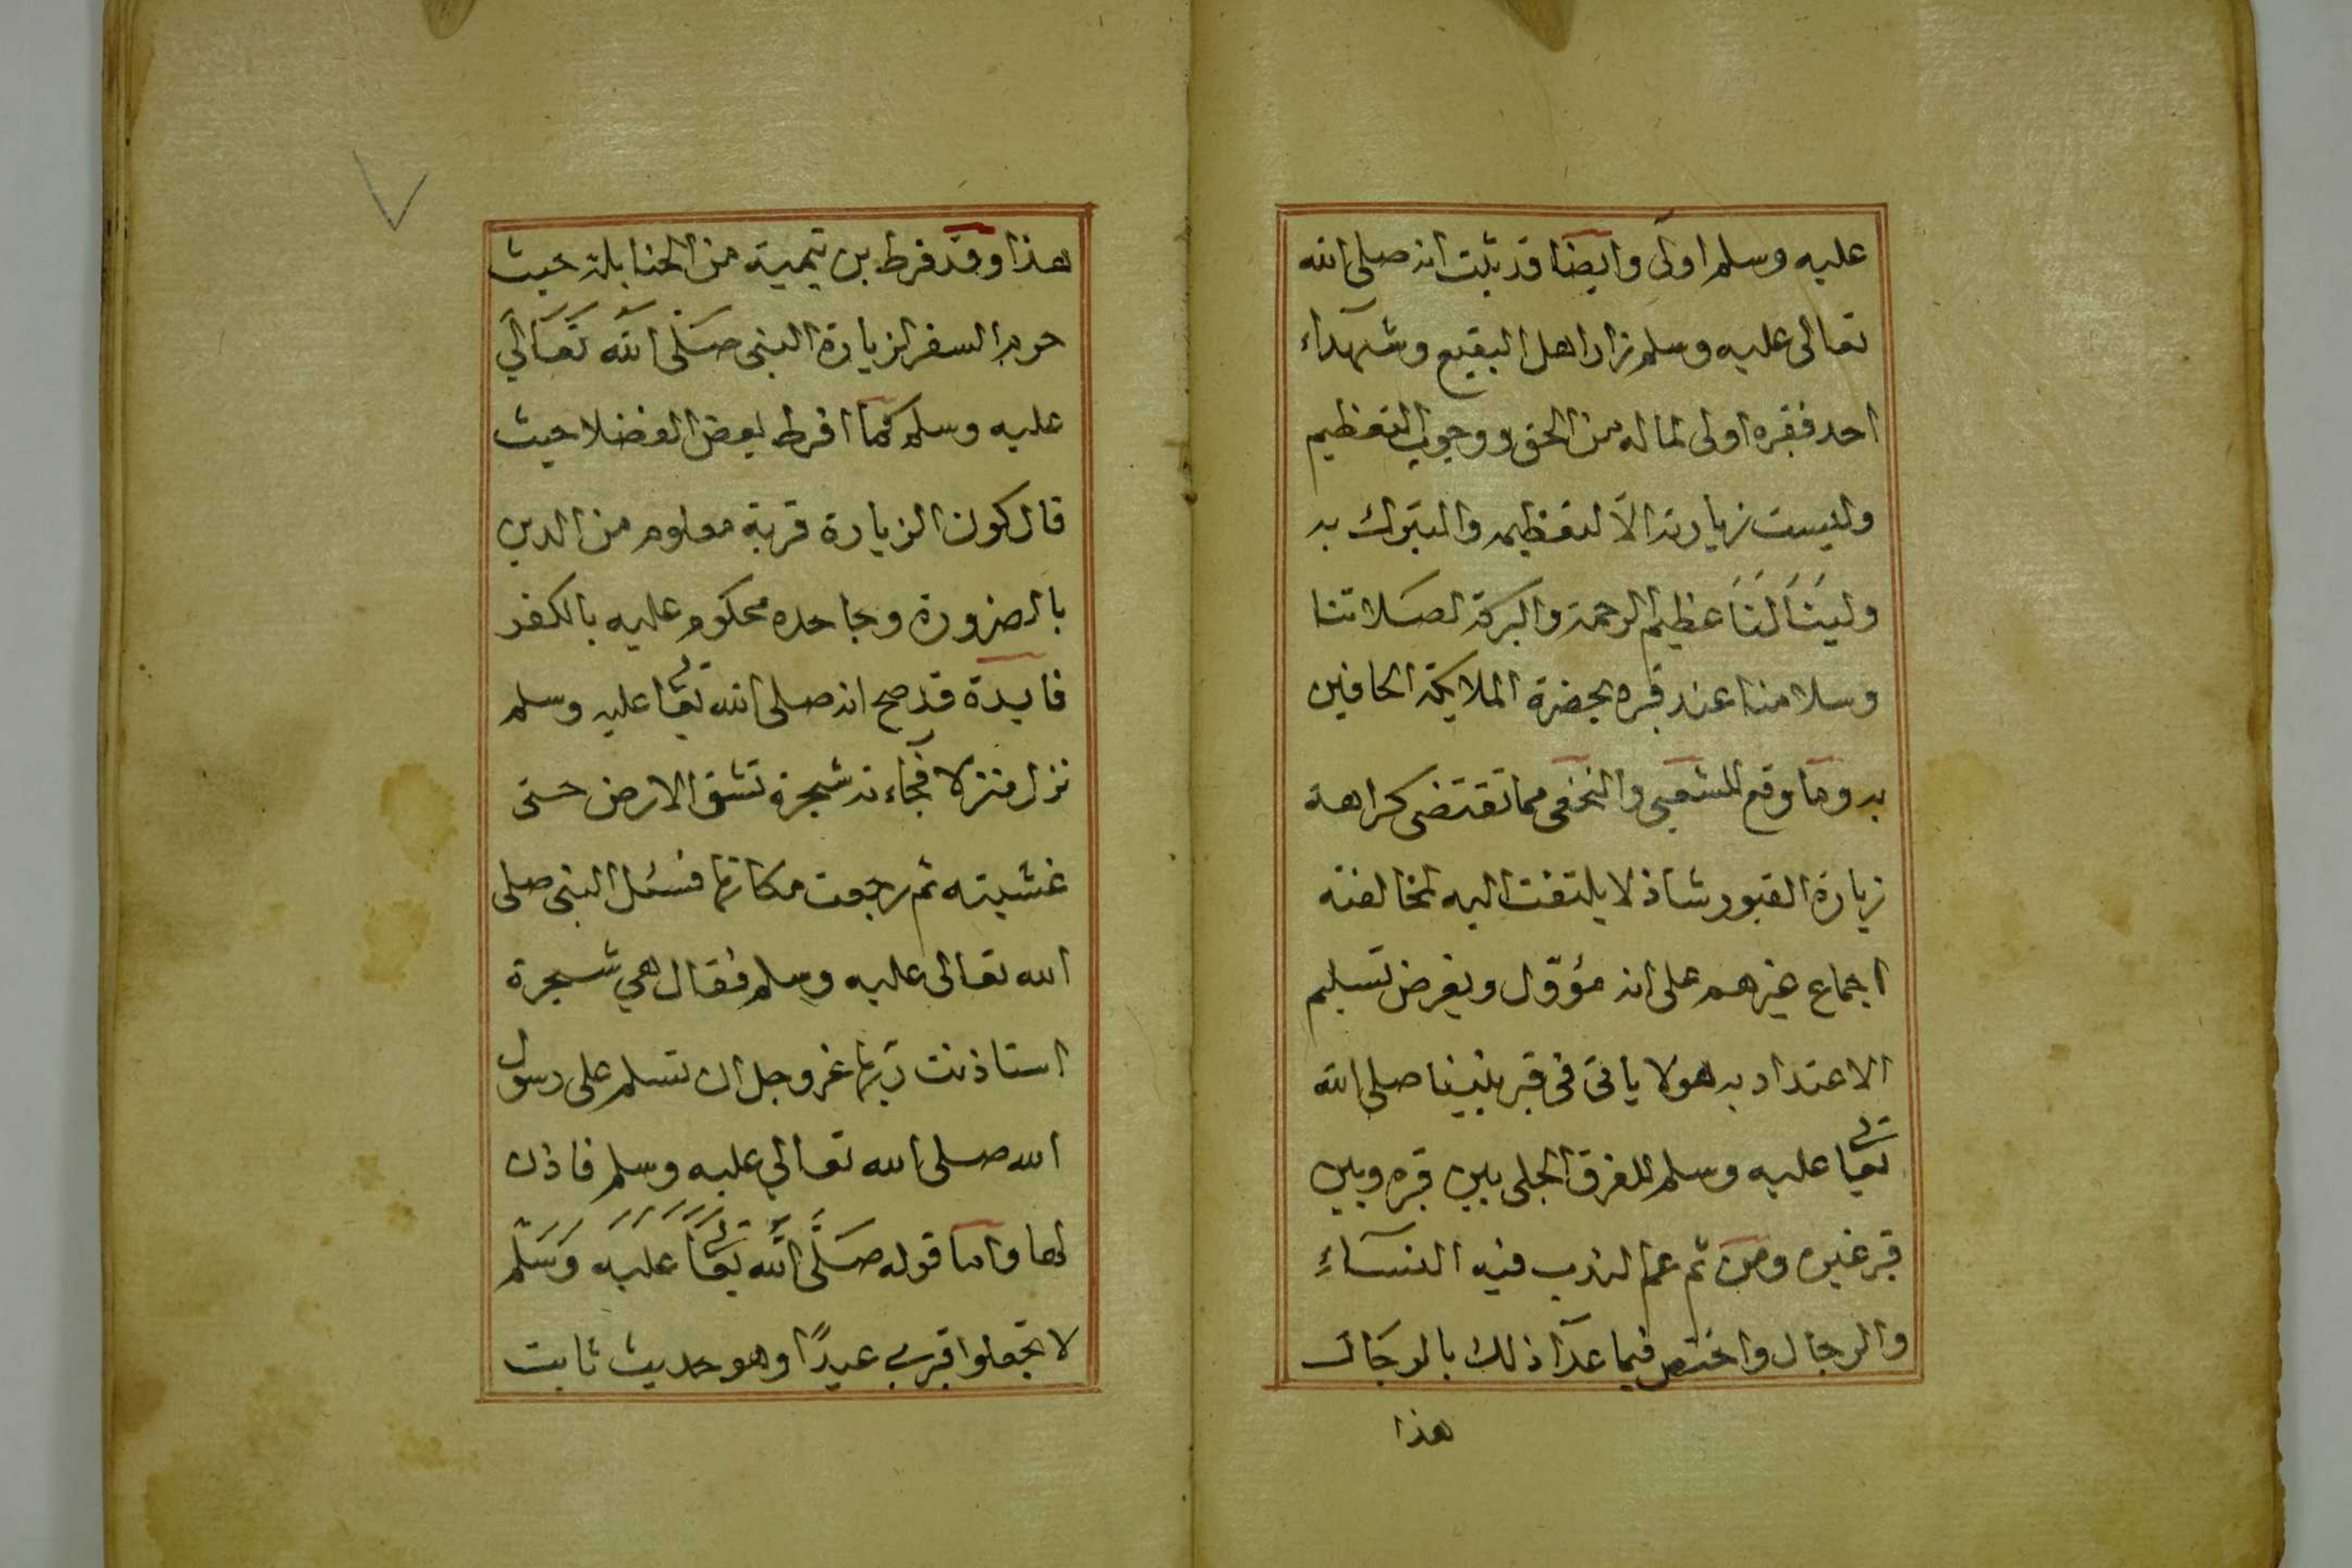 عليه وسلم اولى وايضا قد ثبت انه صلى الله
تعالى عليه وسلم زار اهل البقيع وشهداء
احد فقبره اولى لماله من الحق ووجوب التعظيم
وليست زيارته الا لتعظيمه والتبرك به
ولينالنا عظيم الرحمة والبركة لصلاتنا
وسلامنا عند قبره بحضرة الملايكة الحافين
به وما وقع للشعبي والنخعي مما تقتضى كراهة
زيارة القبور شاذ لا يلتفت اليه لمخالفته
اجماع غيرهم على انه مؤوّل وبفرض تسليم
الاعتداد به هو لا ياتى فى قبر نبينا صلى الله
تعالى عليه وسلم للفرق الجلى بين قبره وبين
قبر غيره ومن ثم عم الندب فيه النساءِ
والرجال واختص فيما عدا ذلك بالرجال
هذا
هذا وقد فرط بن تيمية من الحنابلة حيث
حرم السفر لزيارة النبى صَلَى الله تَعَالَي
عليه وسلم كما افرط بعض الفضلا حيث
قال كون الزيارة قربة معلوم من الدين
بالضرورة وجاحده محكوم عليه بالكفر
فايدة قد صح انه صلى الله تعالى عليه وسلم
نزل منزلا فجاءته شجرة تشق الارض حتى
غشيته ثم رجعت مكانها فسئل النبى صلى
الله تعالى عليه وسلم فقال هي شجرة
استاذنت ربها عز وجل ان تسلم على رسول
الله صلى الله تعالي عليه وسلم فاذن
لها واما قوله صَلَّى اللَّه تعَالى عَليَه وَسَلم
لا تجعلوا قبري عيدًا وهو حديث ثابت